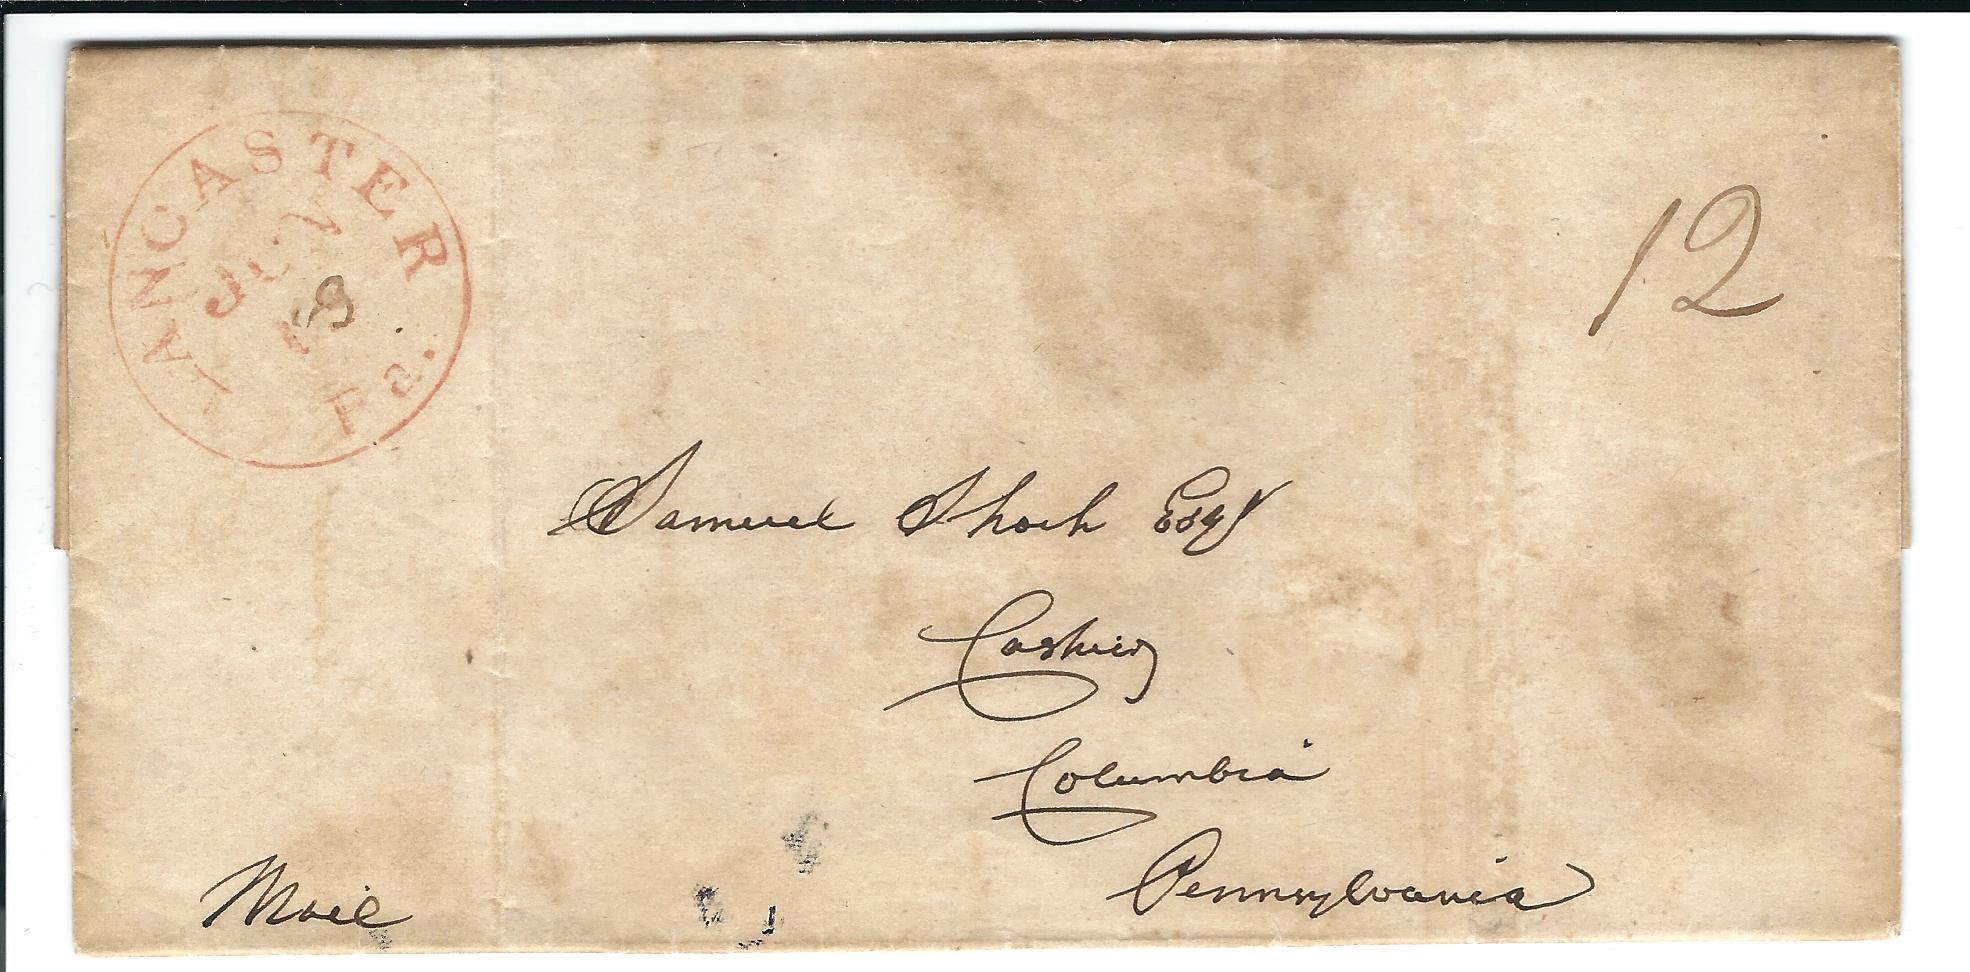 LANCASTER Pa.
12
Samuel Shoch Esqr
Cashier
Columbia
Pennsylvania
Mail